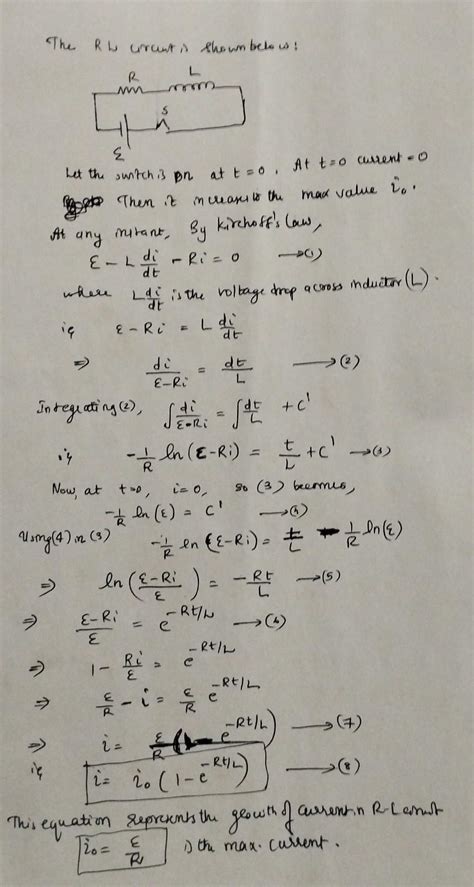 The RL circuit is shown below:
R L
S
ε
Let the switch is on at t=0. At t=0 current=0
Then it increases to the max value i₀.
At any instant, By Kirchoff's law,
ε - L di/dt - Ri = 0 → (1)
where L di/dt is the voltage drop across inductor (L).
ie ε - Ri = L di/dt
⇒ di/(ε-Ri) = dt/L → (2)
Integrating (2), ∫ di/(ε-Ri) = ∫ dt/L + C'
ie -1/R ln (ε-Ri) = t/L + C' → (3)
Now, at t=0, i=0, so (3) becomes,
-1/R ln (ε) = C' → (4)
Using (4) in (3) -1/R ln (ε-Ri) = t/L - 1/R ln(ε)
⇒ ln ((ε-Ri)/ε) = -Rt/L → (5)
⇒ (ε-Ri)/ε = e^(-Rt/L) → (6)
⇒ 1 - Ri/ε = e^(-Rt/L)
⇒ ε/R - i = ε/R e^(-Rt/L)
⇒ i = ε/R (1 - e^(-Rt/L)) → (7)
ie i = i₀ (1 - e^(-Rt/L)) → (8)
This equation represents the growth of current in R-L circuit
i₀ = ε/R is the max. current.